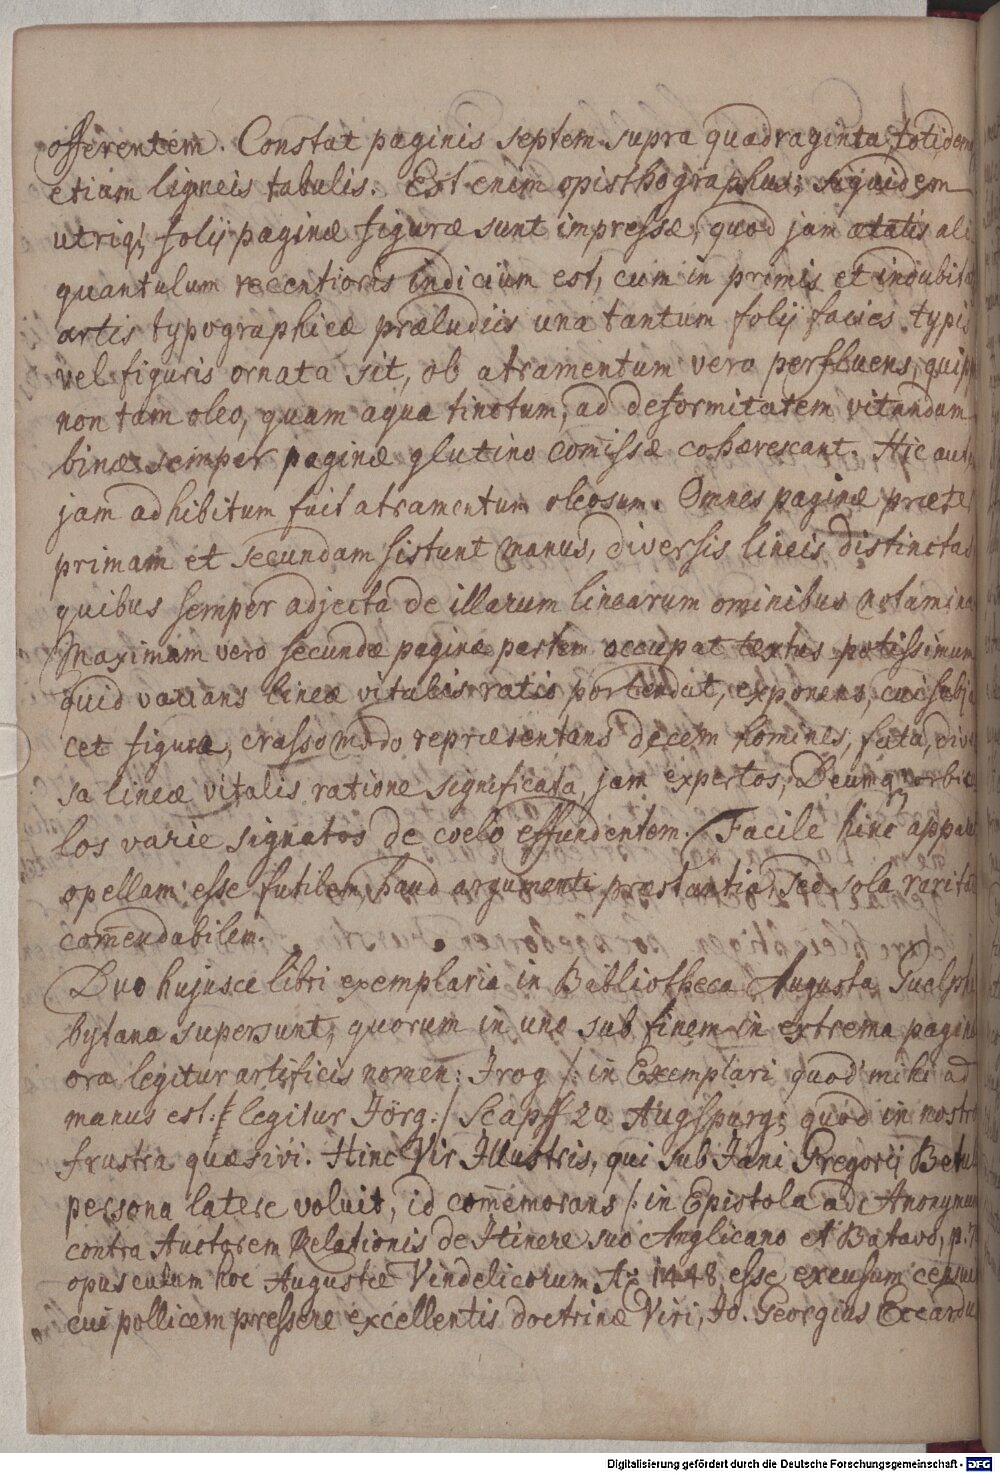 offerentem. Constat paginis septem supra quadraginta, totidem
etiam ligneis tabulis. Est enim opisthographus; siquidem
utriq; folij paginæ figuræ sunt impressæ, quod jam ætatis ali
quantulum recentioris indicium est, cum in primis et indubita
artis typographicæ præludiis una tantum folij facies typis
vel figuris ornata sit, ob atramentum vero perffluens, quipp
non tam oleo, quam aqua tinctum, ad deformitatem vitandam
binæ semper paginæ glutino com̄issæ cohærescant. Hic aut
jam adhibitum fuit atramentum oleosum. Omnes paginæ præter
primam et secundam sistunt manus, diversis lineis distinctas
quibus semper adjecta de illarum linearum ominibus notamina
Maximam vero secundæ paginæ partem occupat textus potissimum
quid varians lineæ vitalis ratio portendat, exponens, cui subji
cet figura, crasso modo repræsentans decem homines, fata, div
sa lineæ vitalis ratione significata, jam expertos, Deumq; orbicu
los varie signatos de coelo effundentem. Facile hinc appar
opellam esse futilem, haud argumenti præstantia, sed sola rarita
com̄endabilem.
Duo hujusce libri exemplaria in Bibliotheca Augusta Guelphe
bytana supersunt, quorum in uno sub finem in extrema pagin
ora legitur artificis nomen: Irog /: in Exemplari quod mihi ad
manus est: legitur Jörg :/ Scapff zu Augspurg; quod in nostro
frustra quæsivi. Hinc Vir Illustris, qui sub Jani Gregorij Betul
persona latere voluit, id com̄emorans /: in Epistola ad Anonymum
contra Auctorem Relationis de Itinere suo Anglicano et Batavo, p. 7
opusculum hoc Augustæ Vindelicorum Aō 1448 esse excusum censui
cui pollicem pressere excellentis doctrinæ Viri, Jo. Georgius Eccardus
Digitalisierung gefördert durch die Deutsche Forschungsgemeinschaft - DFG